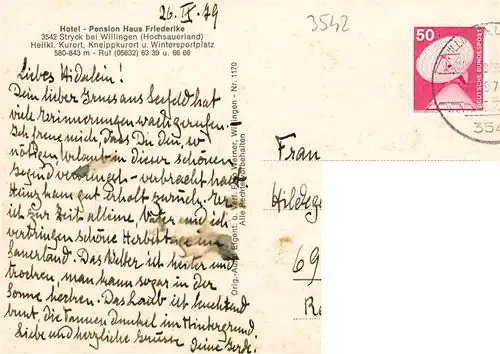 26. IX. 79
3542
Hotel - Pension Haus Friederike
3542 Stryck bei Willingen (Hochsauerland)
Heilkl. Kurort, Kneippkurort u. Wintersportplatz
580-843 m - Ruf (05632) 63 39 u. 66 68
50
DEUTSCHE BUNDESPOST
Liebes Hidalein!
Dein lieber Gruss aus Seefeld hat
viel Erinnerungen wachgerufen.
Ich freue mich, dass Du den, so
nötigen Urlaub in dieser schönen
Gegend verbracht hast
Heinz kam gut erholt zurück. Er
ist zur Zeit alleine, Vater und ich
verbringen schöne Herbsttage im
Sauerland. Das Wetter ist heiter und
trocken, man kann sogar in der
Sonne hocken. Das Laub ist leuchtend
bunt, die Tannen dunkel im Hintergrund!
Liebe und herzliche Grüsse Deine Gerde!
Werner, Willingen - Nr. 1170
Alle Rechte vorbehalten
Frau
Hildeg
69